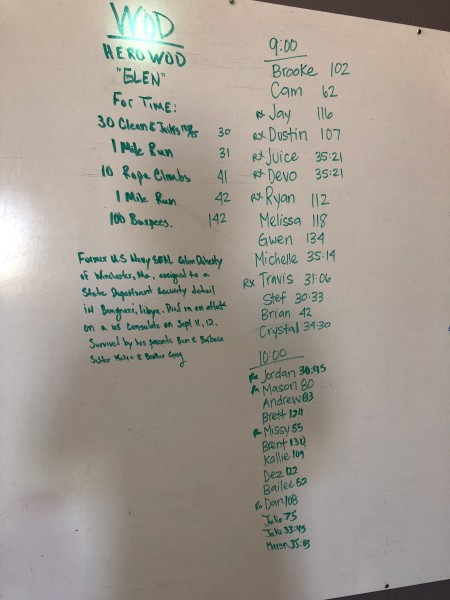 WOD
HERO WOD
"GLEN"
FOR TIME:
30 Clean & Jerks 30
1 Mile Run 31
10 Rope Climbs 41
1 Mile Run 42
100 Burpees. 142
Former U.S Navy SEAL Glen Doherty
of Winchester, Ma., assigned to a
State Department security detail
in Bengazi, Libya. Died in an attack
on a US Consulate on Sept 11, 12.
Survived by his parents Ben & Barbara
Sister &
9:00
Brooke 102
Cam 62
RX Jay 116
RX Dustin 107
RX Juice 35:21
RX Devo 35:21
RX Ryan 112
Melissa 118
Gwen 134
Michelle 35:14
RX Travis 31:06
Stef 30:33
Brian 42
Crystal 34:30
10:00
Rx Jordan
Rx Mason 80
Andrew
Brett 124
Rx Missy 55
Brent
Kallie 109
Dez 122
Bailee 52
Rx Dan 108
Jake 75
33:45